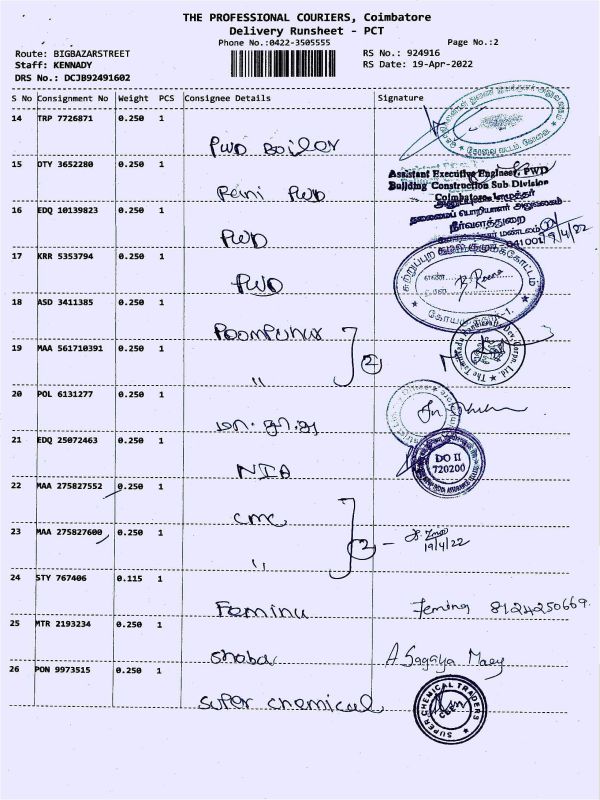 THE PROFESSIONAL COURIERS, Coimbatore
Delivery Runsheet - PCT
Phone No.:0422-3505555
Page No.:2
Route: BIGBAZARSTREET
RS No.: 924916
Staff: KENNADY
RS Date: 19-Apr-2022
DRS No.: DCJB92491602
S No Consignment No Weight PCS Consignee Details Signature
14 TRP 7726871 0.250 1
PWD Boiler
15 OTY 3652280 0.250 1
PWD
Assistant Executive Engineer, PWD
Building Construction Sub Division
Coimbatore
16 EDQ 10139823 0.250 1
PWD
தலைமைப் பொறியாளர் அலுவலகம்
நீர்வளத்துறை
641001
19/4/22
17 KRR 5353794 0.250 1
PWD
18 ASD 3411385 0.250 1
Poompuhar
19 MAA 561710391 0.250 1
"
2
20 POL 6131277 0.250 1
21 EDQ 25072463 0.250 1
NIA
DO II
720200
22 MAA 275827552 0.250 1
cmc
23 MAA 275827600 0.250 1
"
2
19/4/22
24 STY 767406 0.115 1
Femina
Femina 8124250669.
25 MTR 2193234 0.250 1
Shoba
A Sagaya Mary
26 PON 9973515 0.250 1
Super chemical
SUPER CHEMICAL TRADERS
CBE